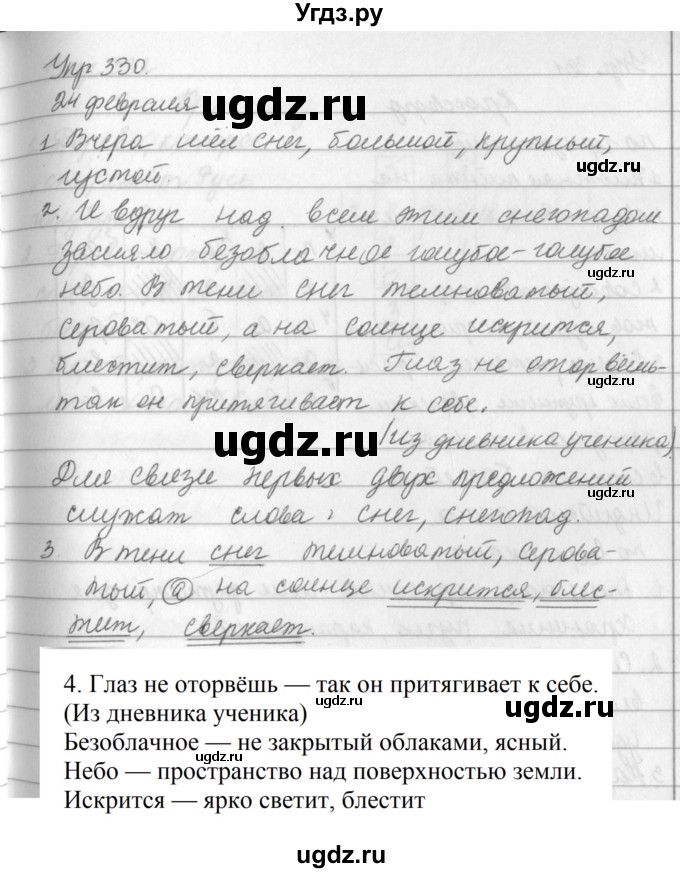 Угдз.ру
Упр 330.
24 февраля
ugdz.ru
1 Вчера шёл снег, большой, крупный,
ugdz.ru
густой.
2. И вдруг над всем этим снегопадом
засияло безоблачное голубое-голубое
ugdz.ru
небо. В тени снег темноватый,
ugdz.ru
сероватый, а на солнце искрится,
блестит, сверкает. Глаз не оторвёшь-
так он притягивает к себе.
ugdz.ru
(из дневника ученика)
ugdz.ru
Для связи первых двух предложений
служат слова: снег, снегопад.
ugdz.ru
3. В тени снег темноватый, серова-
тый, а на солнце искрится, блес-
тит, сверкает.
4. Глаз не оторвёшь — так он притягивает к себе.
ugdz.ru
(Из дневника ученика)
Безоблачное — не закрытый облаками, ясный.
ugdz.ru
Небо — пространство над поверхностью земли.
Искрится — ярко светит, блестит
ugdz.ru